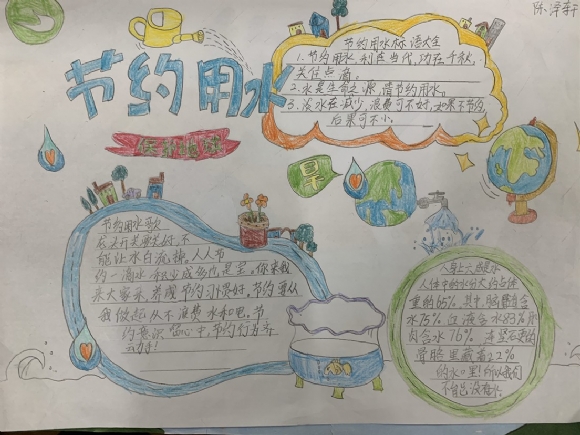 陈泽轩
节约用水
节约用水标语大全
1.节约用水,利在当代,功在千秋,
关住点滴,
2.水是生命之源,请节约用水。
3.淡水在减少,浪费可不好,如果不节约
后果可不小。
旱
节约用水歌
水龙头开关要关好,不
能让水白流掉。人人节
约一滴水 积少成多也是宝。你来我
来大家来,养成节约习惯好。节约要从
我做起从不浪费水和电。节
约意识 记心中,节约行为齐
人身上六成是水
人体中的水分大约占体
重的65%。其中脑髓含
水75% 血液含水83% 肌
肉含水76% 连坚石更的
骨胳里藏着22%
的水呢!所以我们
不能没有水